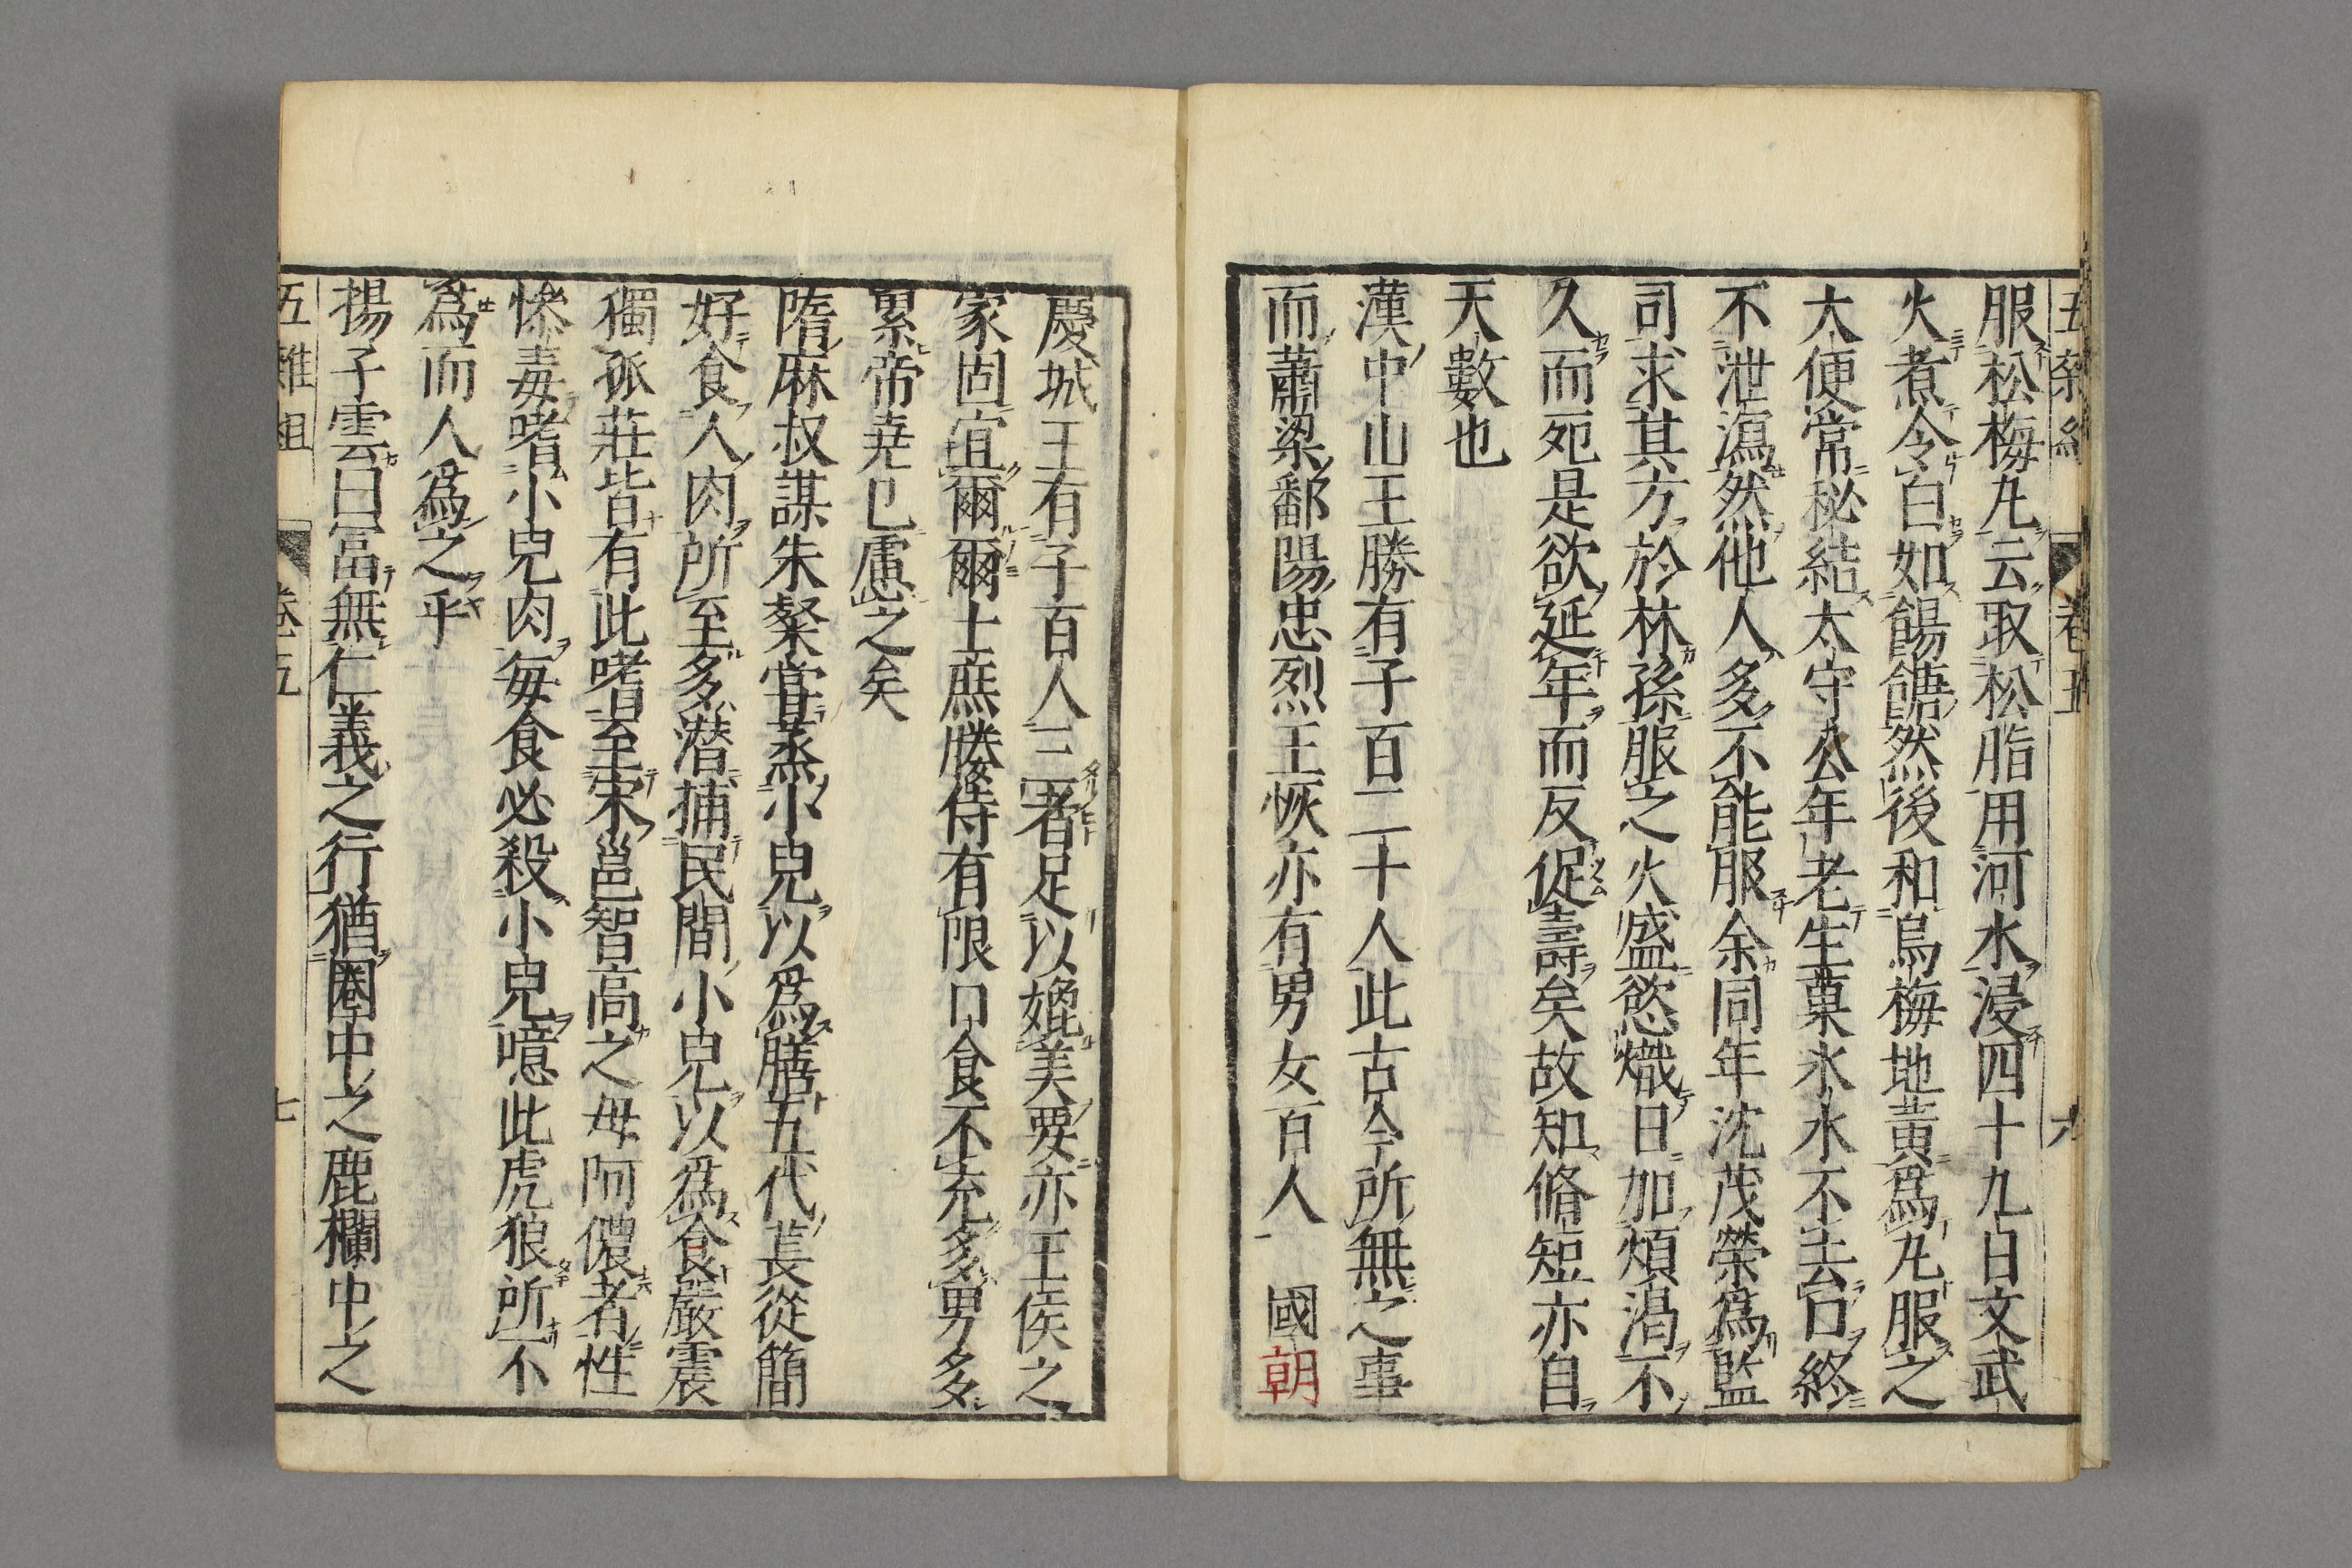 服松梅丸云取松脂用河水浸四十九日文武
火煮令白如餳餹然後和烏梅地黃爲丸服之
大便常秘結太守公年老生菓氷水不去口終
不泄瀉然他人多不能服余同年沈茂榮爲監
司求其方於林孫服之火盛慾熾日加煩渴不
久而死是欲延年而反促壽矣故知脩短亦自
天數也
漢中山王勝有子百二十人此古今所無之事
而蕭梁鄱陽忠烈王恢亦有男女百人 國朝
慶城王有子百人三者足以媲美要亦王侯之
家固宜爾爾士庶媵侍有限口食不充多男多
累帝堯已慮之矣
隋麻叔謀朱粲嘗蒸小兒以爲膳五代萇從簡
好食人肉所至多潜捕民間小兒以爲食嚴震
獨孤莊皆有此嗜至宋邕智高之母阿儂者性
慘毒嗜小兒肉每食必殺小兒噫此虎狼所不
爲而人爲之乎
揚子雲曰富無仁義之行猶圈中之鹿欄中之
五雜組 卷五 七